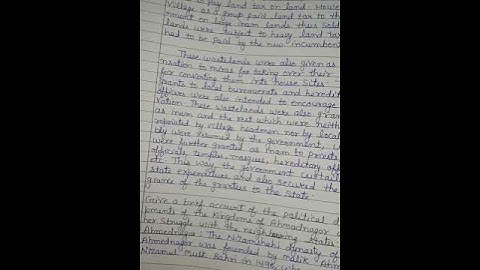 pay land tax on land. House
Village as a group paid land tax to th
nment on large inam lands thus sold
lands were subject to heavy land tax
had to be paid by the new incumbent
These wastelands were also given as
nsation to miras for taking over their
for converting them into house sites.
grants to local bureaucrats and heredit
officers were also intended to encourage
ration. These wastelands were also gran
as inam and the rest which were neith
ropriated by village headmen nor by local
bly were resumed by the government,
were further granted as inam to priests
officials, temples, mosques, hereditary off
etc. This way, the government curtail
state expenditure and also secured the
grance of the grantees to the State.
Give a brief account of the political d
pments of the Kingdoms of Ahmadnagar a
her Struggle with the neighbouring states.
Ahmednagar: The Nizamshahi dynasty of
Ahmednagar was founded by malik Ahm
Nizamul Mulk Bahri in